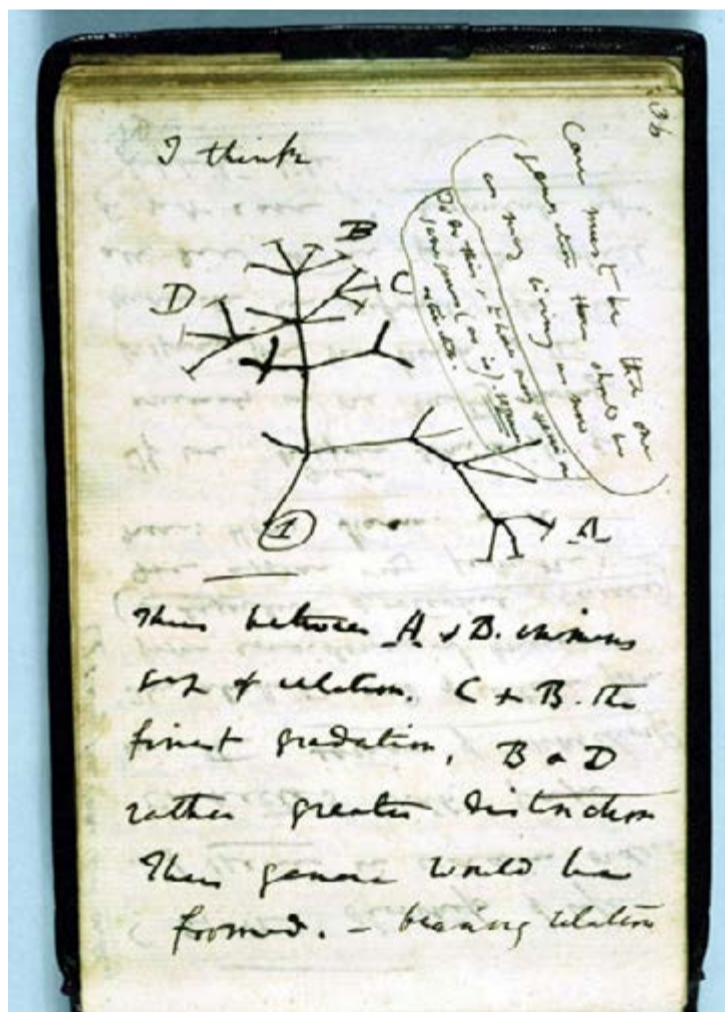 36
I think
Case must be that one
generation then should be
as many living as now
To do this & to have many species in
same genus (as is) requires
extinction.
B
C
D
1
A
Thus between A & B. immens
gap of relation. C & B. the
finest gradation, B & D
rather greater distinction
Thus genera would be
formed. — bearing relation